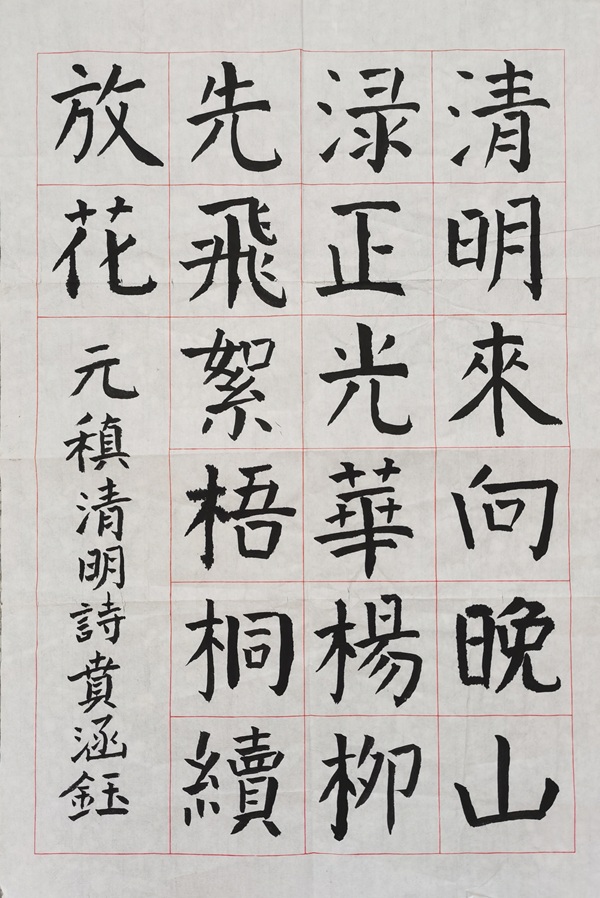 清明來向晚山
渌正光華楊柳
先飛絮梧桐續
放花
元稹清明詩賁涵鈺